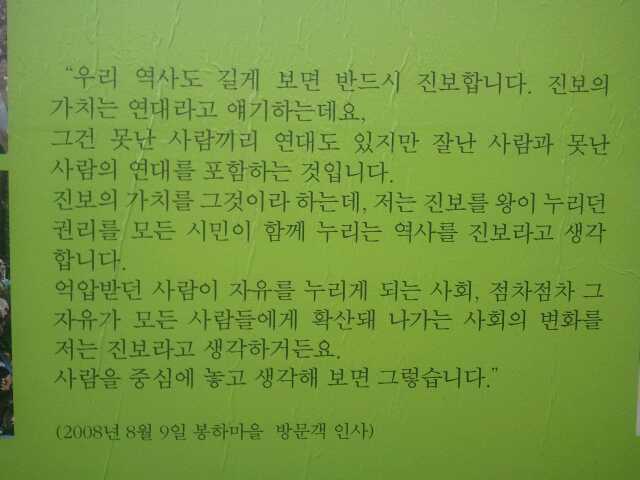 “우리 역사도 길게 보면 반드시 진보합니다. 진보의
가치는 연대라고 얘기하는데요,
그건 못난 사람끼리 연대도 있지만 잘난 사람과 못난
사람의 연대를 포함하는 것입니다.
진보의 가치를 그것이라 하는데, 저는 진보를 왕이 누리던
권리를 모든 시민이 함께 누리는 역사를 진보라고 생각
합니다.
억압받던 사람이 자유를 누리게 되는 사회, 점차점차 그
자유가 모든 사람들에게 확산돼 나가는 사회의 변화를
저는 진보라고 생각하거든요.
사람을 중심에 놓고 생각해 보면 그렇습니다.”
(2008년 8월 9일 봉하마을 방문객 인사)